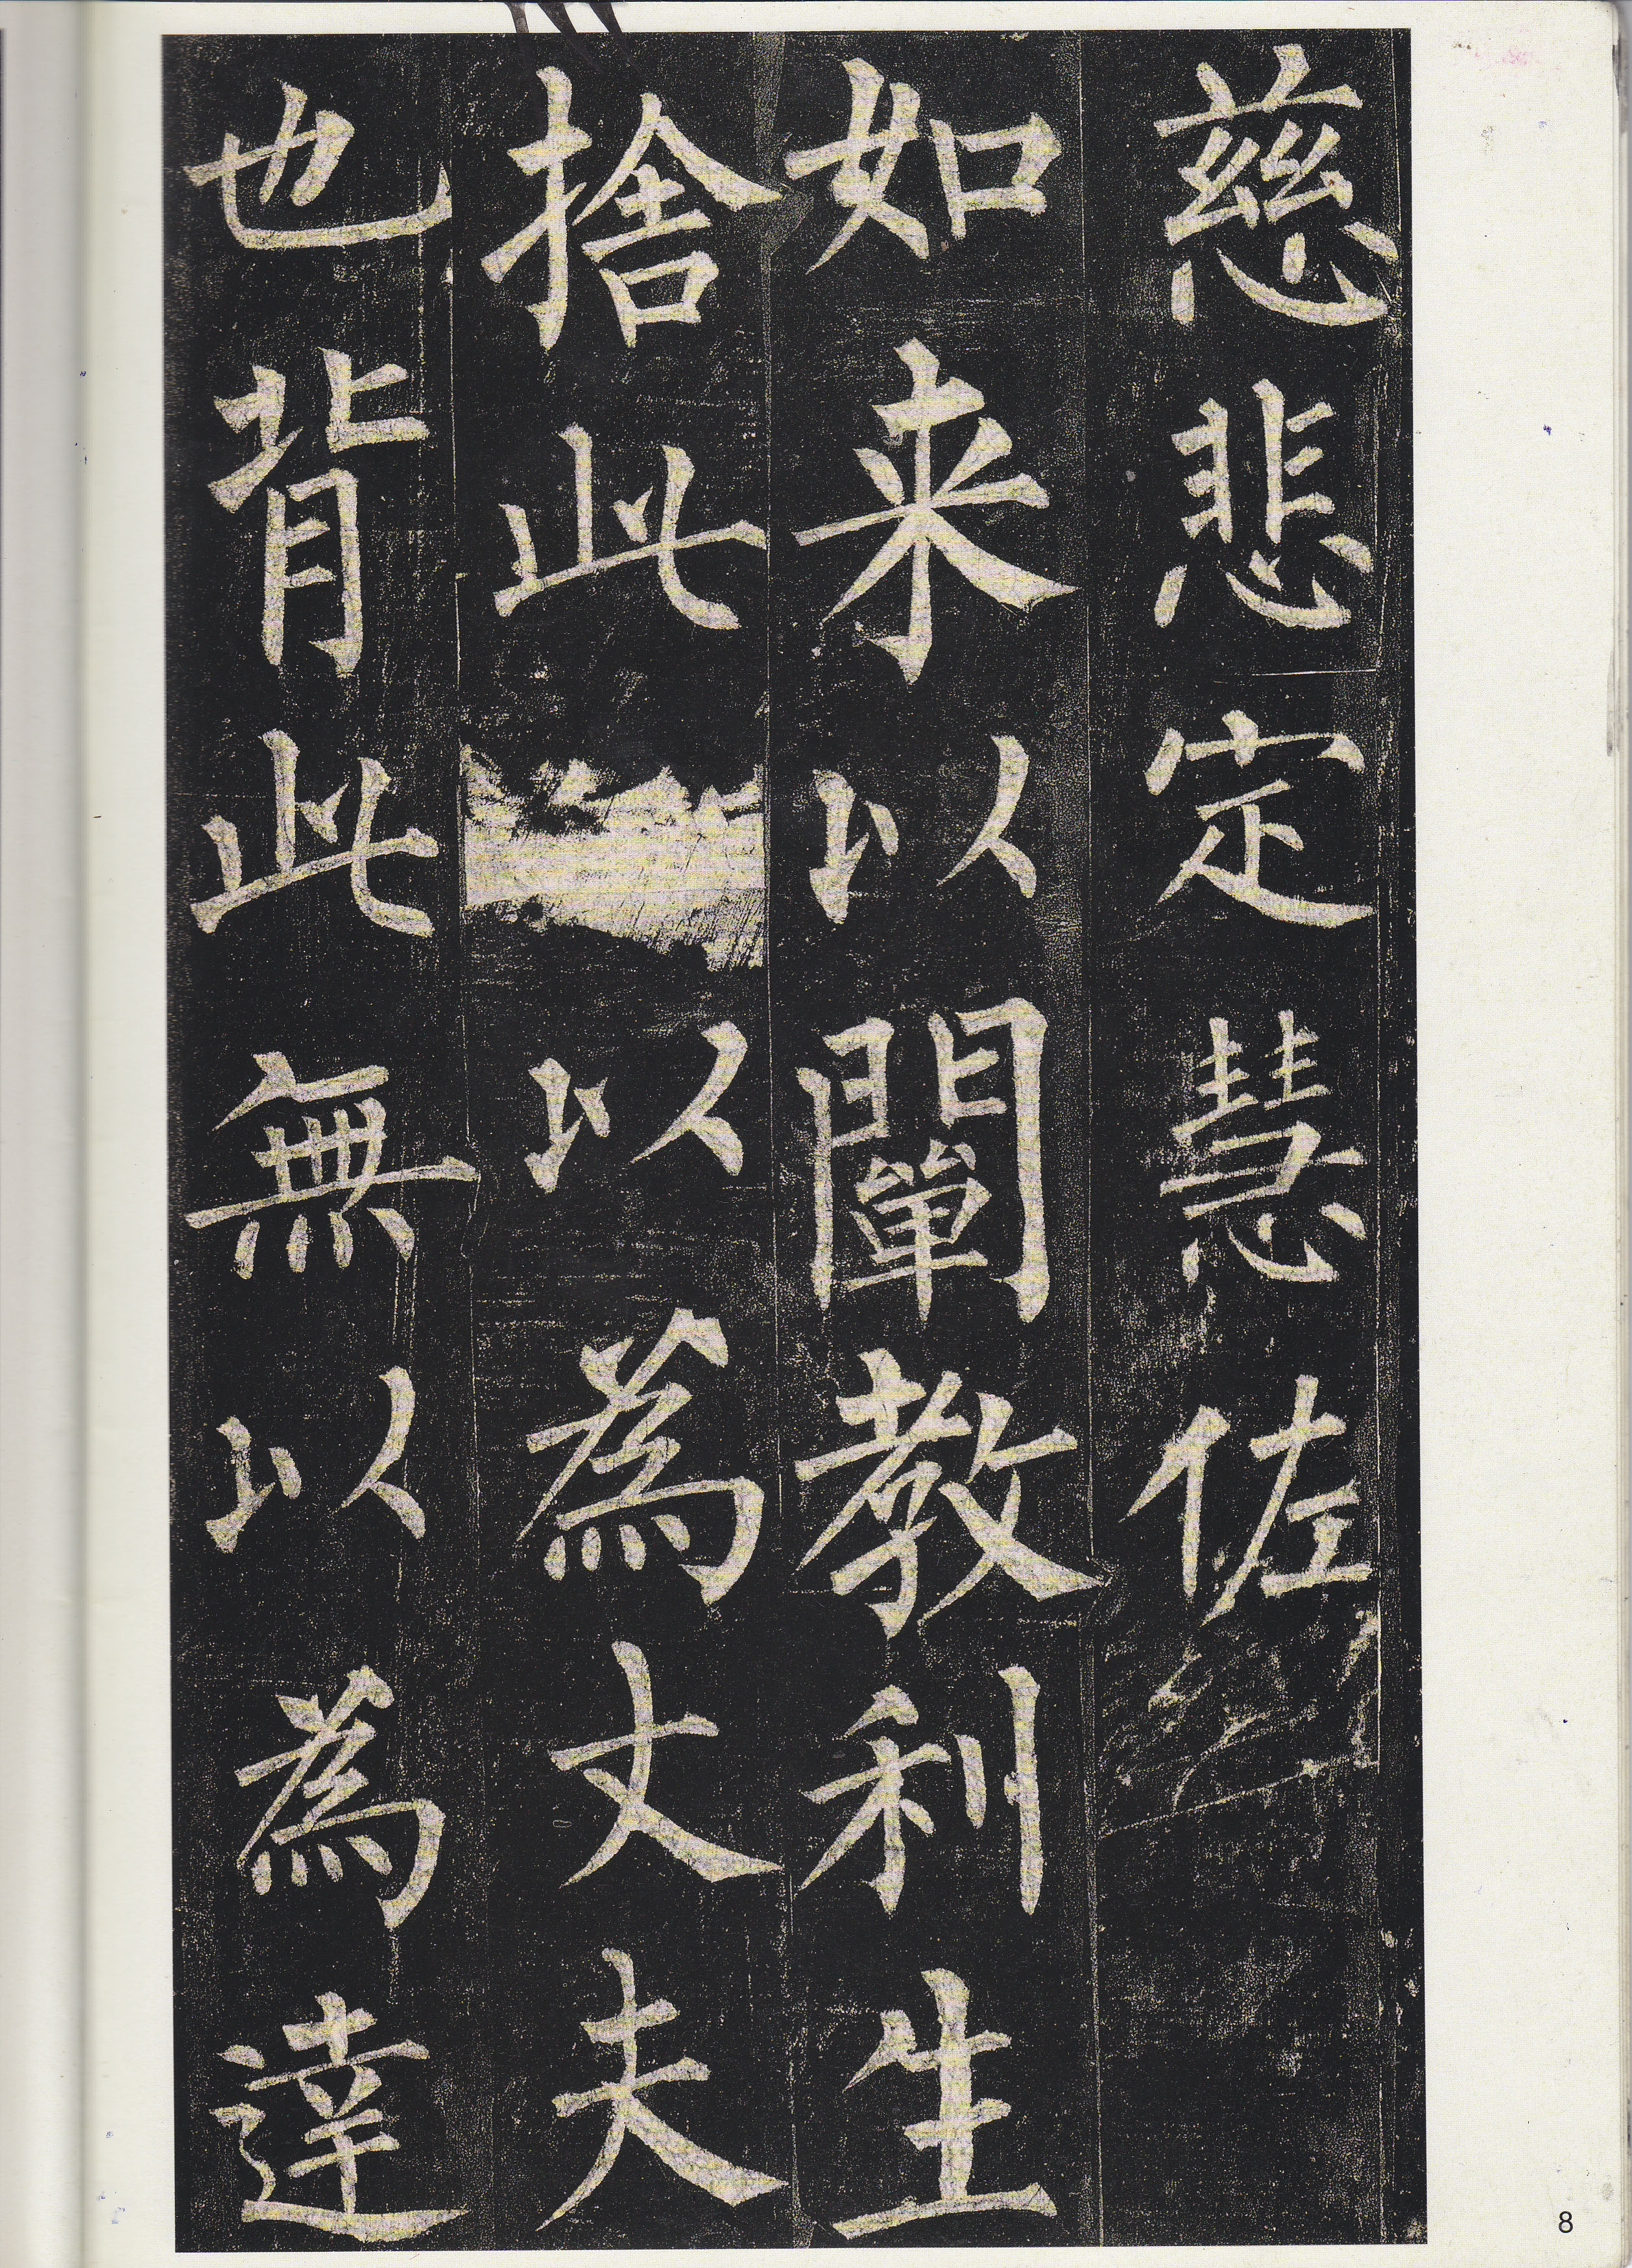 慈悲定慧佐
如来以闡教利生
捨此以為丈夫
也背此無以為達
8